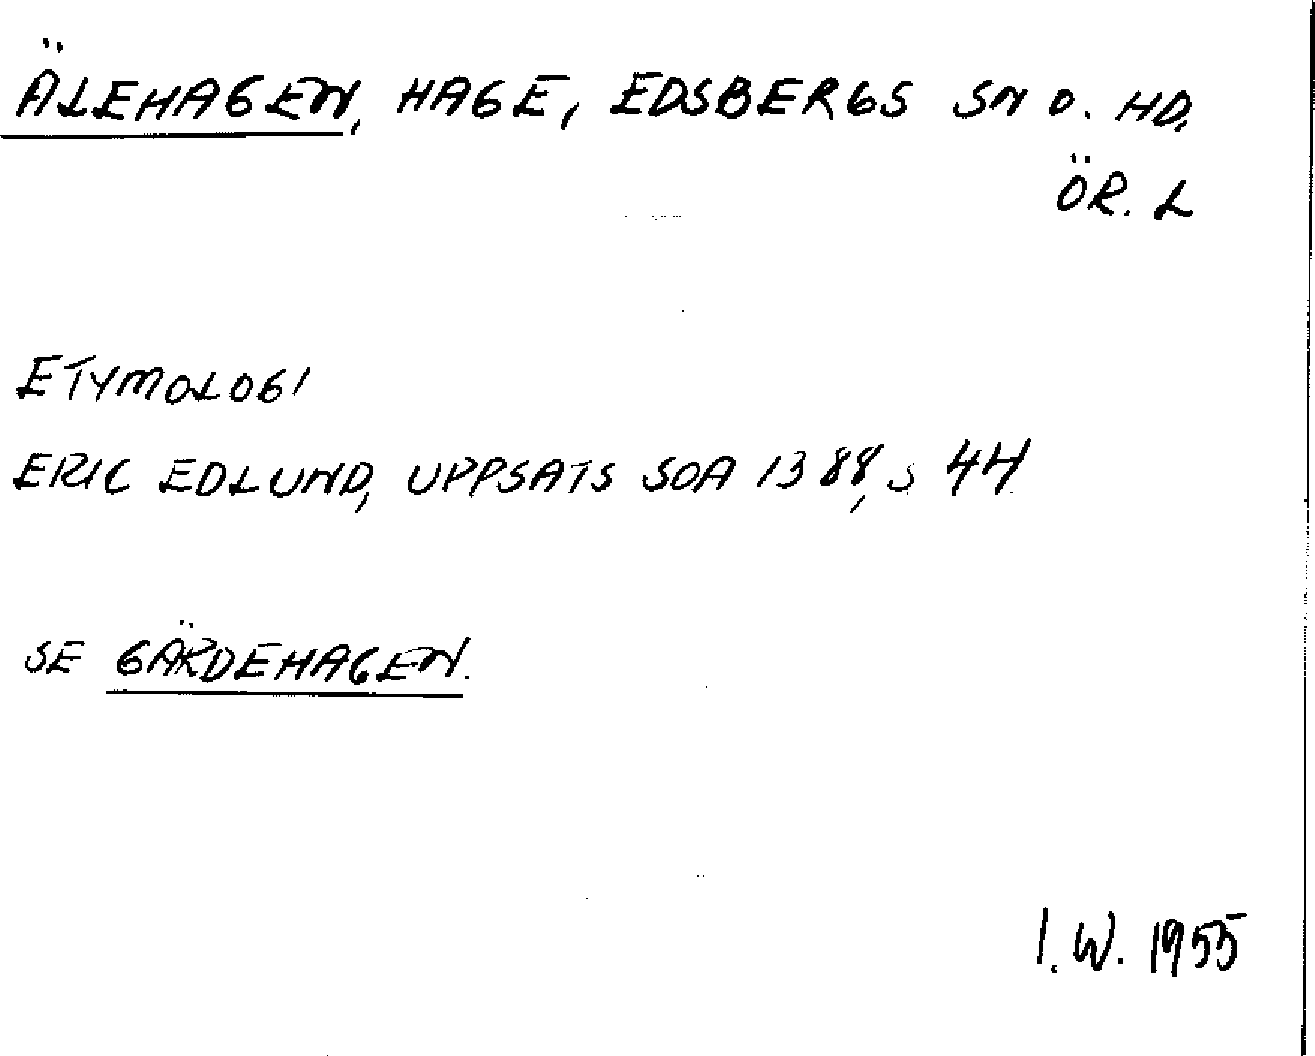 ÄLEHAGEN, HAGE, EDSBERGS SN O. HD.
ÖR. L
ETYMOLOGI
ERIC EDLUND, UPPSATS SOA 1388, S 44
SE GÄRDEHAGEN.
I. W. 1955